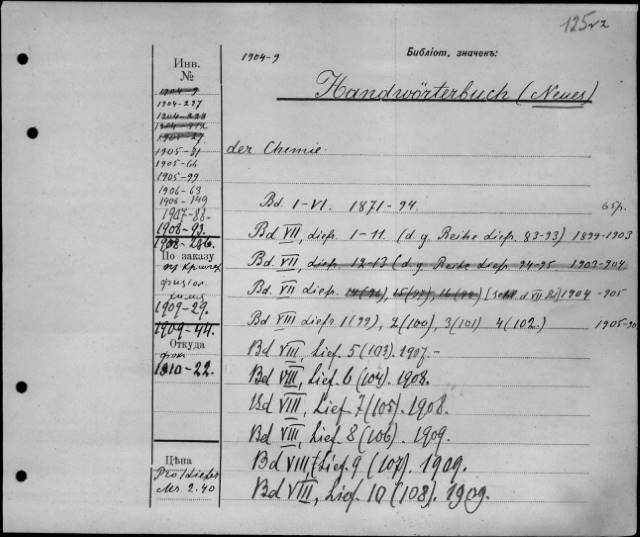 125
1904-9
Библіот. значенъ:
Инв.
№
Handwörterbuch (Neues)
1904-9
1904-227
1904-228
1905-27
1905-31
der Chemie.
1905-66
1905-99
1906-63
1906-149
Bd. I-VI. 1871-94. 65р.
1907-88.
1908-93.
Bd VII, Lief. 1-11. (d. g. Reihe Lief. 83-93) 1899-1903
1908-286.
По заказу
Bd. VII, Lief. 12-13 (d. g. Reihe Lief. 94-95 1903-904
физіол.
химія
Bd. VII Lief. 14(96), 15(97), 16(98) [Schl. d. VII Bd] 1904-905
1909-29.
1909-44.
Bd VIII Lief. 1(99), 2(100), 3(101) 4(102.) 1905-90
Откуда
Bd VIII, Lief. 5(103). 1907.-
1910-22.
Bd VIII, Lief. 6(104). 1908.
Bd VIII, Lief. 7(105). 1908.
Bd VIII, Lief. 8(106). 1909.
Цѣна
Bd VIII, Lief. 9 (107). 1909.
Pro Liefer
Mr. 2.40
Bd VIII, Lief. 10 (108). 1909.